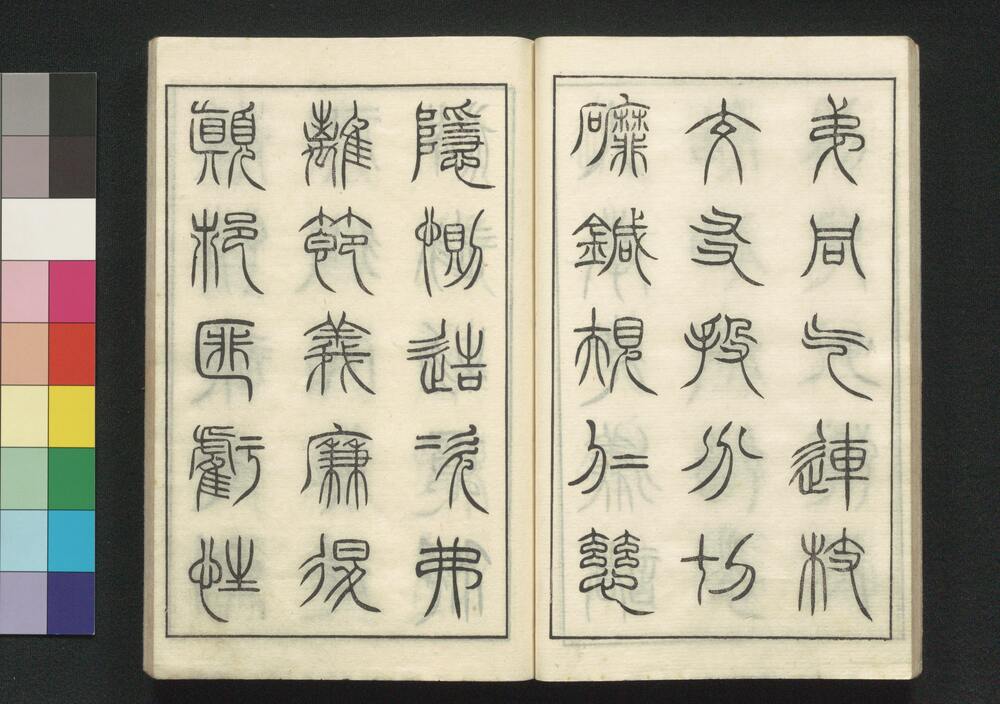 弟同气連枝
交友投分切
磨鍼規仁慈
隱惻造次弗
離節義廉退
顛沛匪虧性